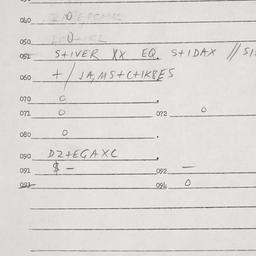 040
050
051 S+IVER XX EQ. S+IDAX // SI
060 + / JA, MS+C+IKBES
070 0
071 0 072 0
080 0
090 DZ+EGAXC
091 $ - 092 -
093 096 0